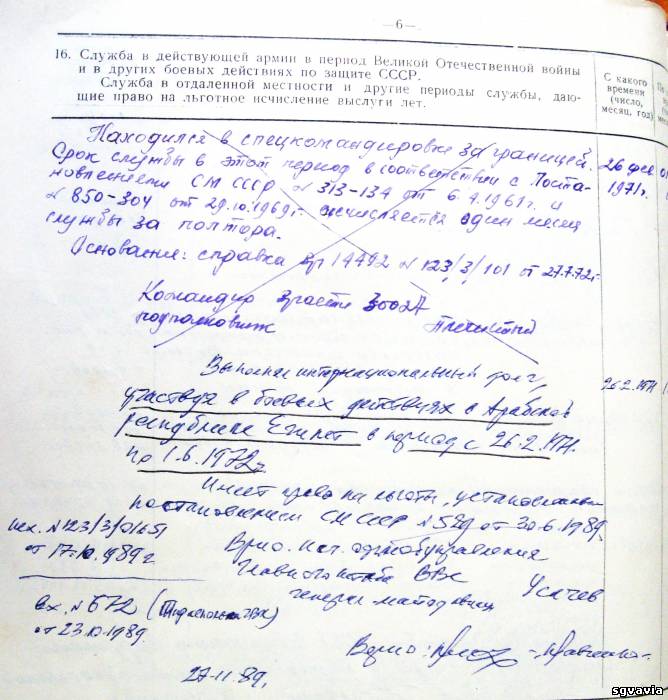 —6—
16. Служба в действующей армии в период Великой Отечественной войны
и в других боевых действиях по защите СССР.
Служба в отдаленной местности и другие периоды службы, даю-
щие право на льготное исчисление выслуги лет.
С какого
времени
(число,
месяц, год)
Находился в спецкомандировке за границей.
Срок службы в этот период в соответствии с Поста-
новлением СМ СССР № 313-134 от 6.4.1961г. и
№ 850-304 от 29.10.1969г. исчисляется один месяц
службы за полтора.
26 фев
1971г.
Основание: справка в/ч 14492 № 123/3/101 от 27.7.72г.
Командир в/части 30027
подполковник
Выполнял интернациональный долг,
участвуя в боевых действиях в Арабской
Республике Египет в период с 26.2.1971.
по 1.6.1972г.
26.2.1971
Имеет право на льготы, установленные
постановлением СМ СССР № 529 от 30.6.1989.
исх. № 123/3/01651
от 17.10.1989г
Врио. нач. оргмобуправления
Главного штаба ВВС
генерал-майор авиации
Усачев
вх. № 672
от 23.10.1989
Верно:
27.11.89.
sgvavia